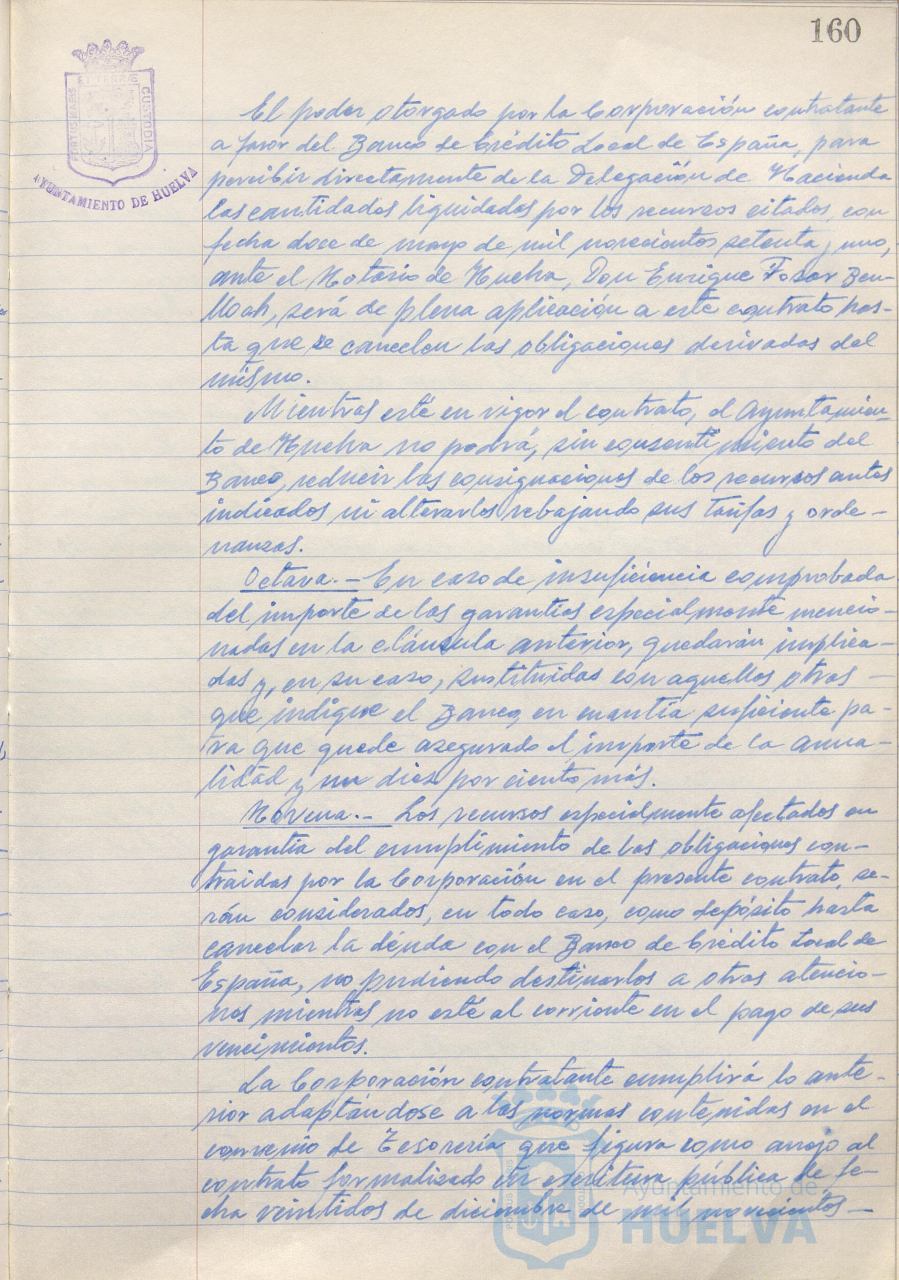 160
PORTUS MARIS ET TERRAE CUSTODIA
AYUNTAMIENTO DE HUELVA
El poder otorgado por la Corporación contratante
a favor del Banco de Crédito Local de España, para
percibir directamente de la Delegación de Hacienda
las cantidades liquidadas por los recursos citados, con
fecha doce de mayo de mil novecientos setenta y uno,
ante el Notario de Huelva, Don Enrique Fosar Ben-
lloch, será de plena aplicación a este contrato has-
ta que se cancelen las obligaciones derivadas del
mismo.
Mientras esté en vigor el contrato, el Ayuntamien-
to de Huelva no podrá, sin consentimiento del
Banco, reducir las consignaciones de los recursos antes
indicados ni alterarlos rebajando sus tarifas y orde-
nanzas.
Octava.- En caso de insuficiencia comprobada
del importe de las garantías especialmente mencio-
nadas en la cláusula anterior, quedarán implica-
das y, en su caso, sustituidas con aquellos otros -
que indique el Banco, en cuantía suficiente pa-
ra que quede asegurado el importe de la anua-
lidad y un diez por ciento más.
Novena.- Los recursos especialmente afectados en
garantía del cumplimiento de las obligaciones con-
traidas por la Corporación en el presente contrato, se-
rán considerados, en todo caso, como depósito hasta
cancelar la deuda con el Banco de Crédito Local de
España, no pudiendo destinarlos a otras atencio-
nes mientras no esté al corriente en el pago de sus
vencimientos.
La Corporación contratante cumplirá lo ante-
rior adaptándose a las normas contenidas en el
convenio de Tesorería que figura como anejo al
contrato formalizado en escritura pública de fe-
cha veintidos de diciembre de mil novecientos -
Ayuntamiento de
HUELVA